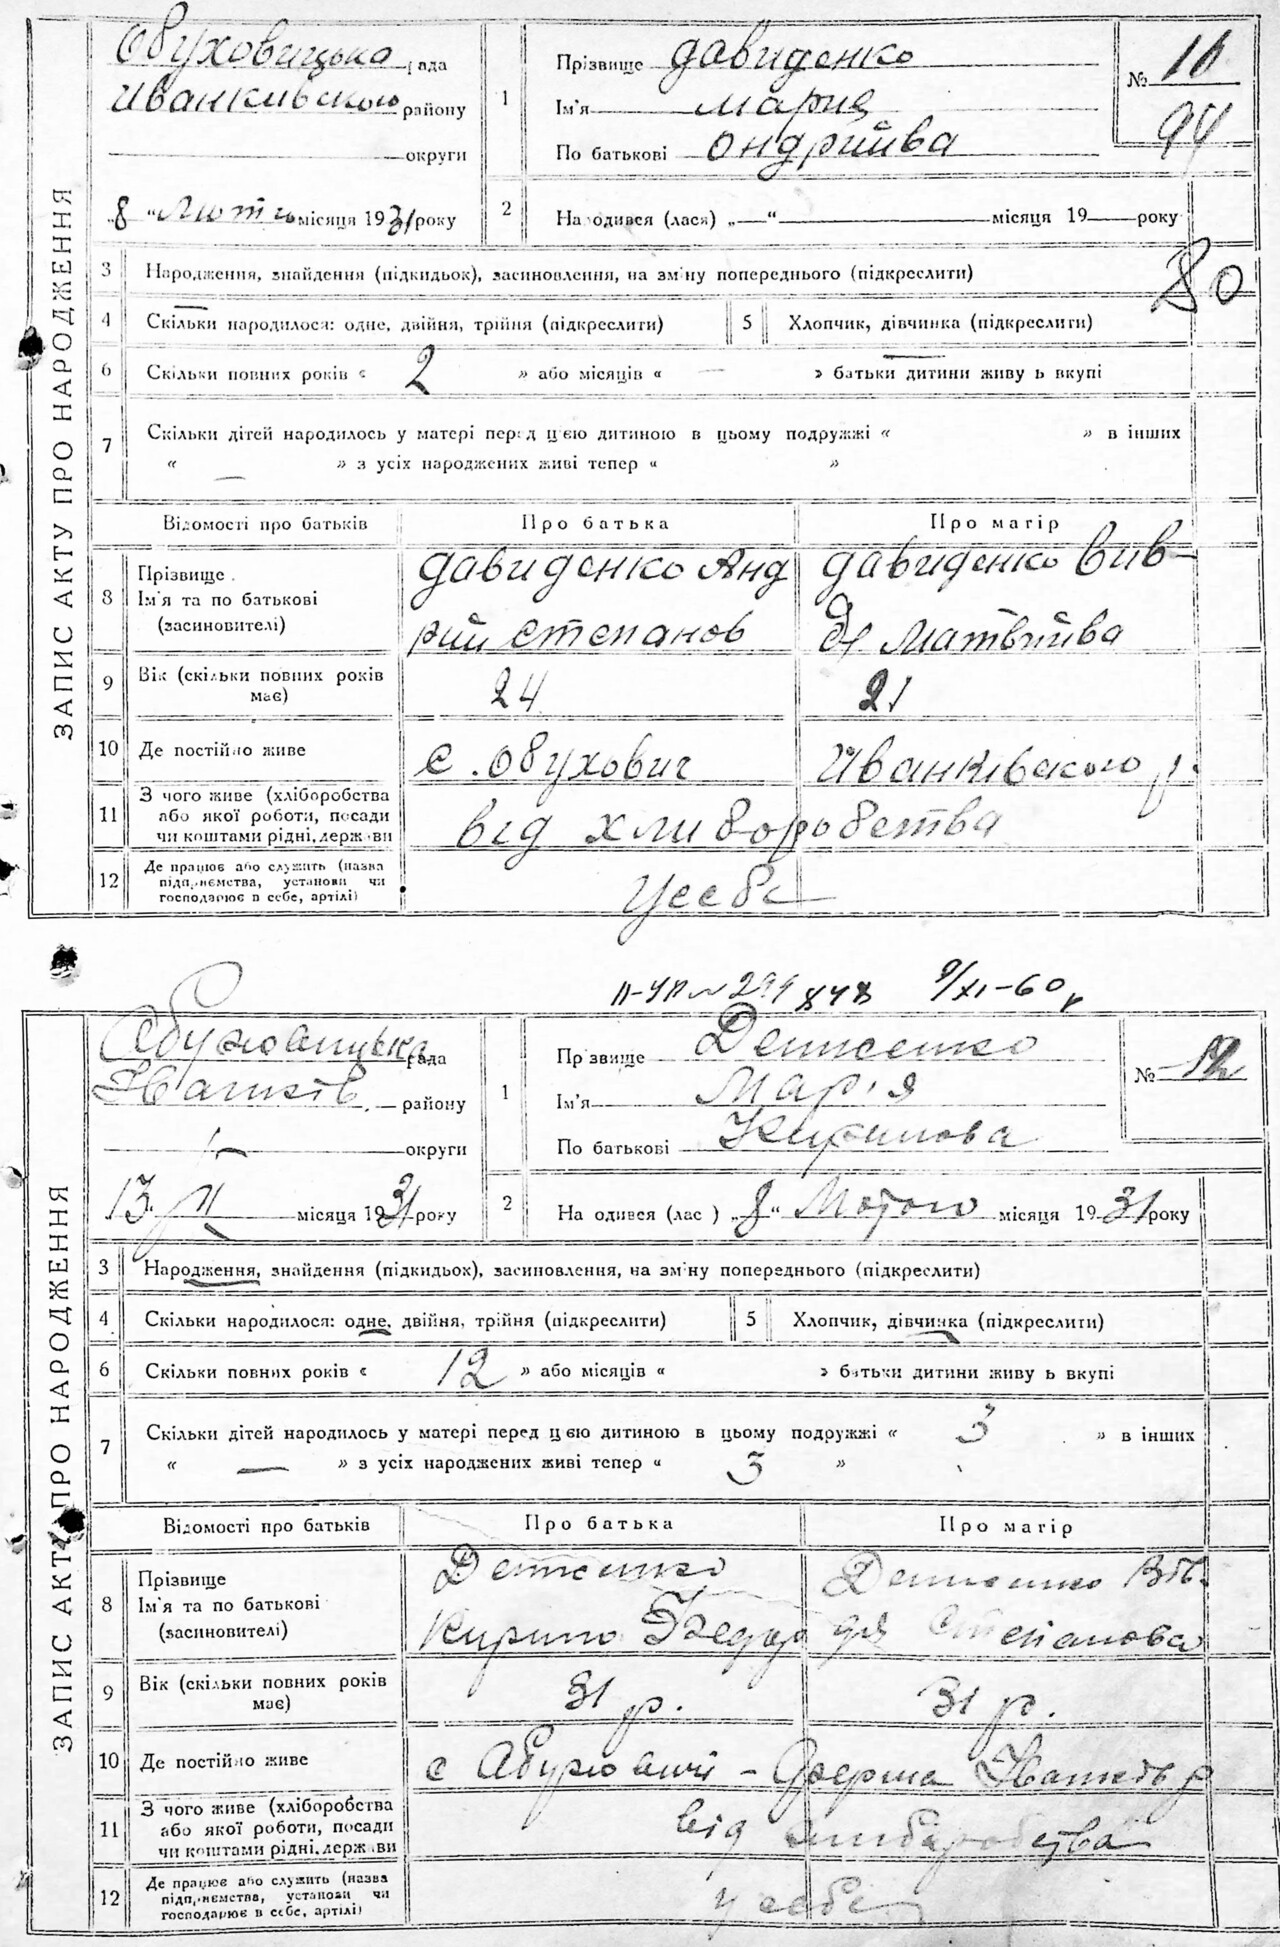 ЗАПИС АКТУ ПРО НАРОДЖЕННЯ
Обуховицька рада
Иванкивського району
округи
„8 “ Лютго місяця 1931 року
1
Прізвище давиденко
Ім'я мария
По батькові Ондрийва
№ 16
94
2
Народився (лася) „—“ місяця 19 року
3 Народження, знайдення (підкидьок), засиновлення, на зміну попереднього (підкреслити)
80
4 Скільки народилося: одне, двійня, трійня (підкреслити)
5 Хлопчик, дівчинка (підкреслити)
6 Скільки повних років « 2 » або місяців « — » батьки дитини живуть вкупі
7 Скільки дітей народилось у матері перед цією дитиною в цьому подружжі « » в інших
« — » з усіх народжених живі тепер « »
Відомості про батьків Про батька Про матір
8 Прізвище
Ім'я та по батькові
(засиновителі)
давиденко Анд
рий степанов
давиденко Вив-
дя Матвийва
9 Вік (скільки повних років має) 24 21
10 Де постійно живе с. Обухович Иванківського р.
11 З чого живе (хліборобства
або якої роботи, посади
чи коштами рідні, держави
від хлиборобства
12 Де працює або служить (назва
підприємства, установи чи
господарює в себе, артілі)
Усебе
П-УП № 299848 9/XI-60р
ЗАПИС АКТУ ПРО НАРОДЖЕННЯ
Обуховицька рада
Іванків. району
округи
13. II місяця 1931 року
1
Прізвище Денисенко
Ім'я Мар'я
По батькові Кирилова
№ 12
2
Народився (лася) „8“ Лютого місяця 1931 року
3 Народження, знайдення (підкидьок), засиновлення, на зміну попереднього (підкреслити)
4 Скільки народилося: одне, двійня, трійня (підкреслити)
5 Хлопчик, дівчинка (підкреслити)
6 Скільки повних років « 12 » або місяців « » батьки дитини живуть вкупі
7 Скільки дітей народилось у матері перед цією дитиною в цьому подружжі « 3 » в інших
« — » з усіх народжених живі тепер « 3 »
Відомості про батьків Про батька Про матір
8 Прізвище
Ім'я та по батькові
(засиновителі)
Денисенко
Кирило Хведор
Денисенко Вів-
дя Степанова
9 Вік (скільки повних років має) 31 р. 31 р.
10 Де постійно живе с Обуховичі - Ферма Іванків р
11 З чого живе (хліборобства
або якої роботи, посади
чи коштами рідні, держави
від хліборобства
12 Де працює або служить (назва
підприємства, установи чи
господарює в себе, артілі)
у себе